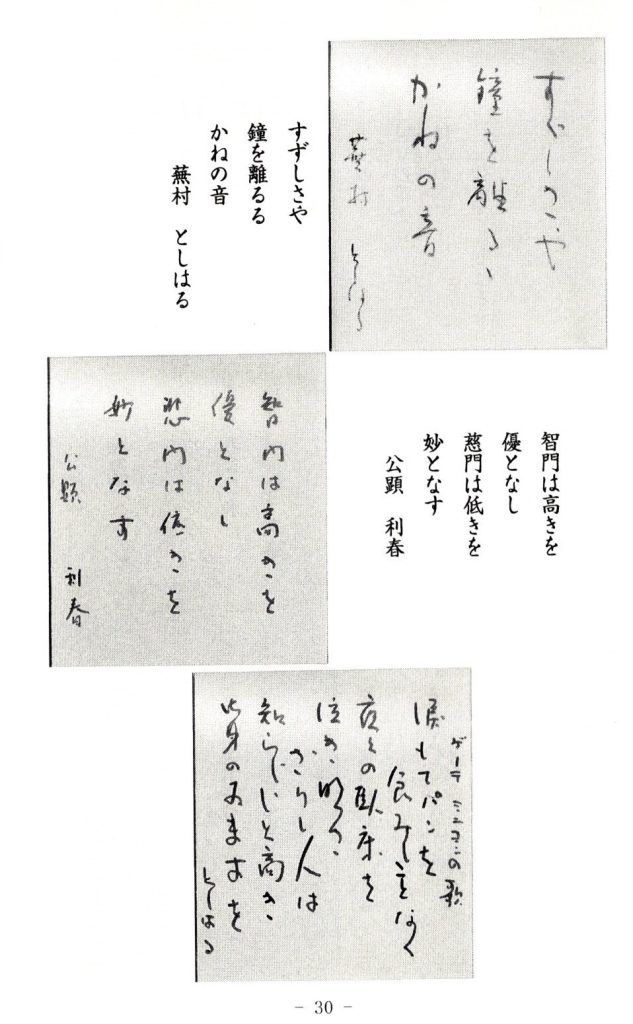 すずしさや
鐘を離るゝ
かねの音
蕪村 としはる
すずしさや
鐘を離るる
かねの音
蕪村 としはる
智門は高きを
優となし
慈門は低きを
妙となす
公顕 利春
智門は高きを
優となし
悲門は低きを
妙となす
公顕 利春
ゲーテ ミニヨンの歌
涙もてパンを
食みしことなく
夜々の臥床を
泣き明か
ざりし人は
知らじいと高き
身のおますを
としはる
- 30 -